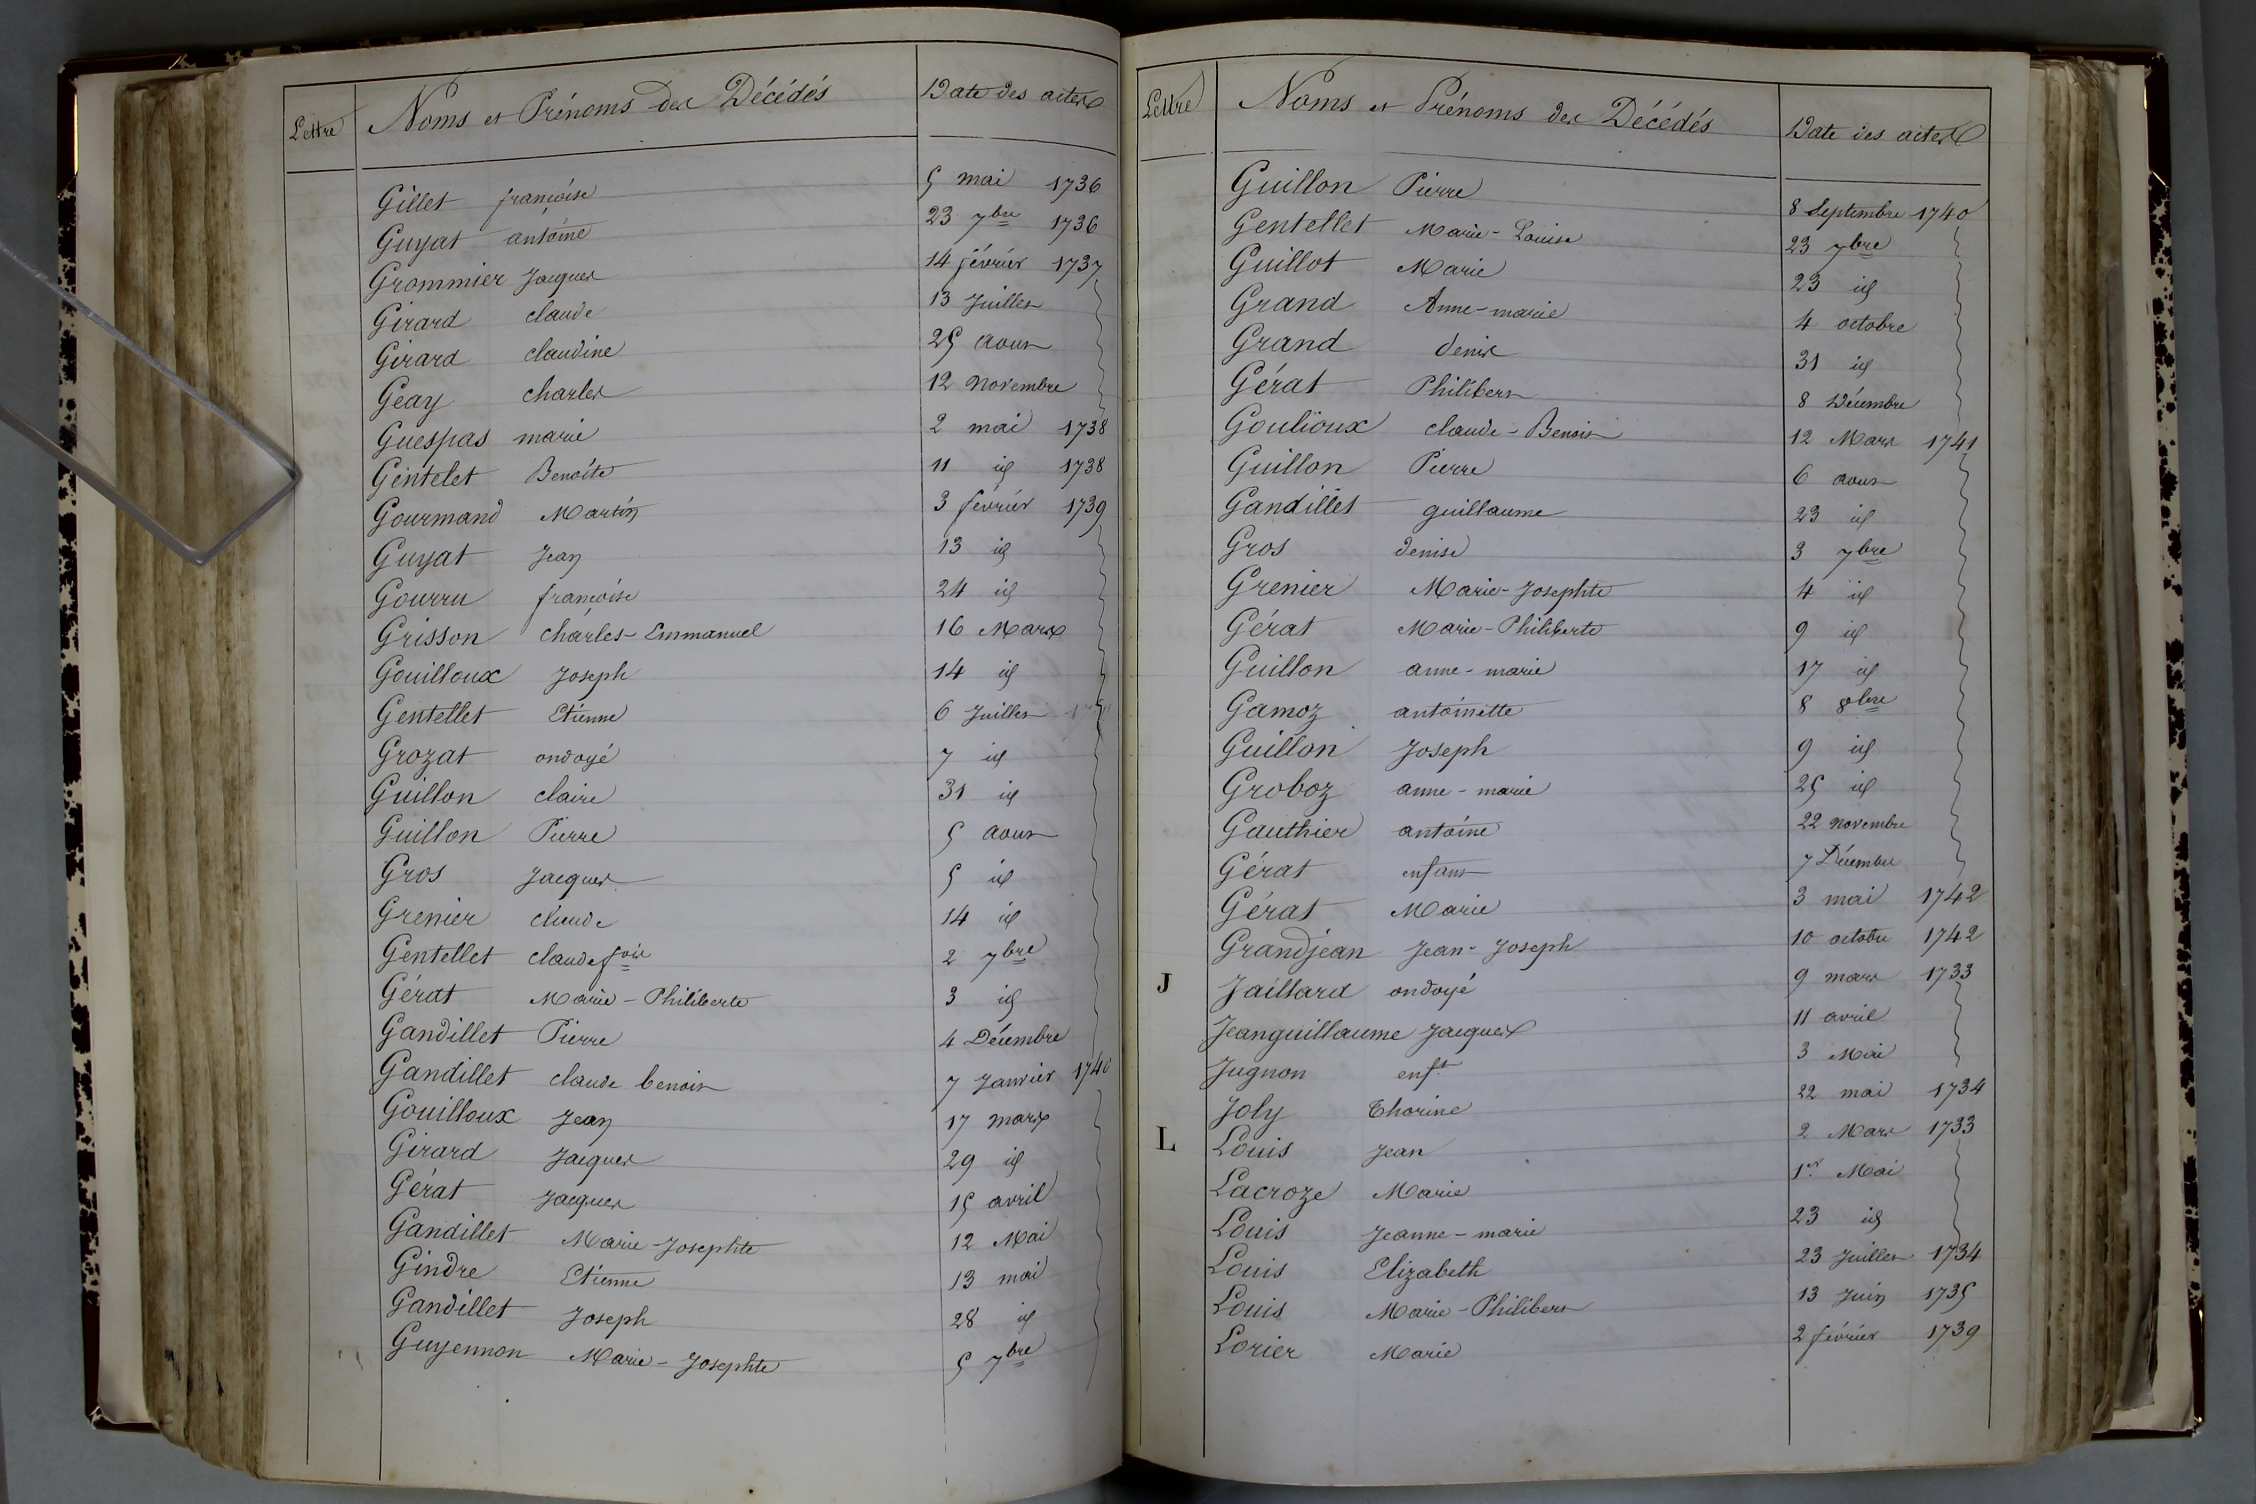 Lettre Noms et Prénoms des Décédés Date des actes
Gillet françoise 5 mai 1736
Guyat antoine 23 7bre 1736
Grommier Jacques 14 février 1737
Girard claude 13 Juillet
Girard claudine 25 aout
Geay charles 12 novembre
Guespas marie 2 mai 1738
Gentelet Benoite 11 id 1738
Gourmand Martin 3 février 1739
Guyat Jean 13 id
Gourru françoise 24 id
Grisson charles-Emmanuel 16 Mars
Gouilloux Joseph 14 id
Gentellet Etienne 6 Juillet
Grozat ondoyé 7 id
Guillon claire 31 id
Guillon Pierre 5 aout
Gros Jacques 5 id
Grenier claude 14 id
Gentellet claude fois 2 7bre
Gérat Marie-Philiberte 3 id
Gandillet Pierre 4 Décembre
Gandillet claude benoit 7 Janvier 1740
Gouilloux Jean 17 mars
Girard Jacques 29 id
Gérat Jacques 15 avril
Gandillet Marie-Josephte 12 Mai
Gindre Etienne 13 mai
Gandillet Joseph 28 id
Guyennon Marie-Josephte 5 7bre
Lettre Noms et Prénoms des Décédés Date des actes
Guillon Pierre 8 Septembre 1740
Gentellet Marie-Louise 23 7bre
Guillot Marie 23 id
Grand Anne-marie 4 octobre
Grand denis 31 id
Gérat Philibert 8 Décembre
Goulioux claude-Benoit 12 Mars 1741
Guillon Pierre 6 aout
Gandillet guillaume 23 id
Gros denise 3 7bre
Grenier Marie-Josephte 4 id
Gérat Marie-Philiberte 9 id
Guillon anne-marie 17 id
Gamoz antoinette 8 8bre
Guillon Joseph 9 id
Groboz anne-marie 25 id
Gauthier antoine 22 novembre
Gérat enfant 7 Décembre
Gérat Marie 3 mai 1742
Grandjean Jean-Joseph 10 octobre 1742
J Jaillard ondoyé 9 mars 1733
Jeanguillaume Jacques 11 avril
Jugnon enft 3 Mai
Joly Thorine 22 mai 1734
L Louis Jean 2 Mars 1733
Lacroze Marie 1er Mai
Louis Jeanne-marie 23 id
Louis Elizabeth 23 Juillet 1734
Louis Marie-Philibert 13 Juin 1735
Lorier Marie 2 février 1739